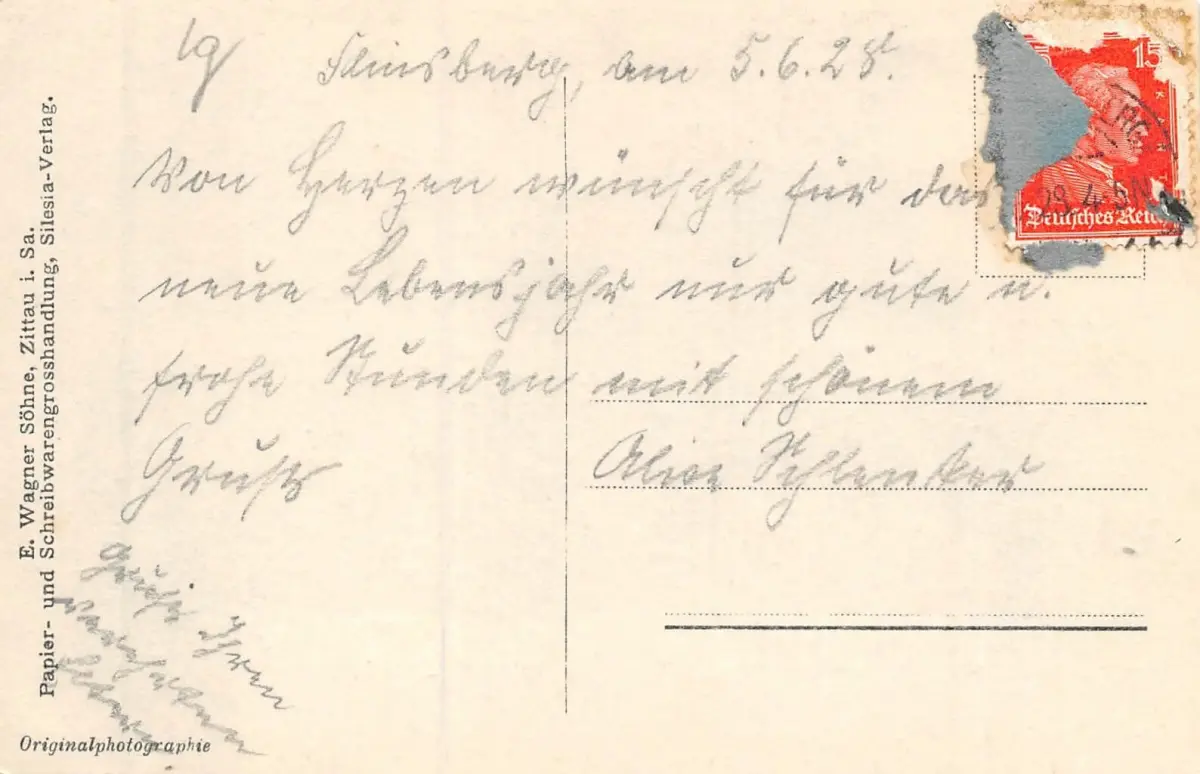 Flinsberg, am 5.6.28.
Von Herzen wünscht für das
neue Lebensjahr nur gute u.
frohe Stunden mit schönem
Gruß
Alice Schlenker
Grüße Ihren
verehrten
Eltern
15
Deutsches Reich
E. Wagner Söhne, Zittau i. Sa.
Papier- und Schreibwarengrosshandlung, Silesia-Verlag.
Originalphotographie